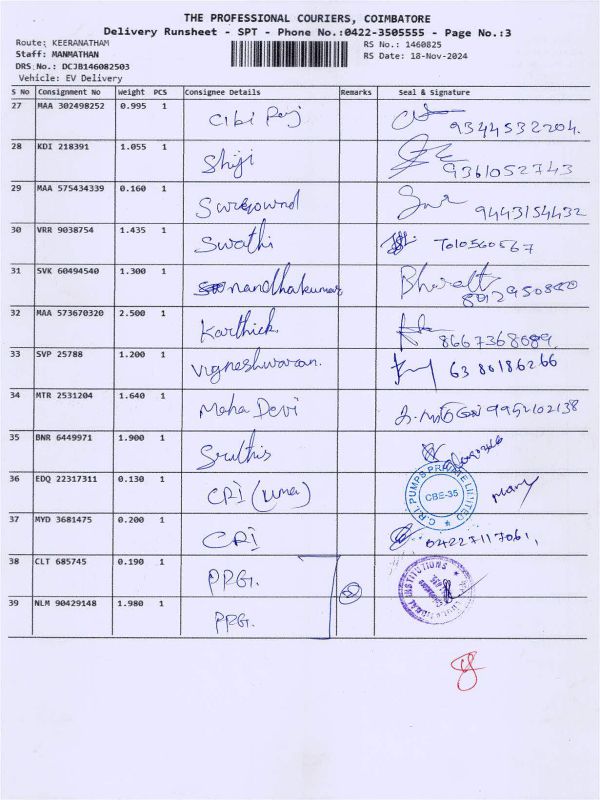 THE PROFESSIONAL COURIERS, COIMBATORE
Delivery Runsheet - SPT - Phone No.:0422-3505555 - Page No.:3
Route: KEERANATHAM RS No.: 1460825
Staff: MANMATHAN RS Date: 18-Nov-2024
DRS No.: DCJB146082503
Vehicle: EV Delivery
S No Consignment No Weight PCS Consignee Details Remarks Seal & Signature
27 MAA 302498252 0.995 1 Cibi Raj 9344532204.
28 KDI 218391 1.055 1 Shiji 9361052743
29 MAA 575434339 0.160 1 9443154432
30 VRR 9038754 1.435 1 Swathi 7010560567
31 SVK 60494540 1.300 1 nandhakumar Bharath
32 MAA 573670320 2.500 1 Karthick 8667368089
33 SVP 25788 1.200 1 Vigneshwaran. 6380186266
34 MTR 2531204 1.640 1 Maha Devi 9952102138
35 BNR 6449971 1.900 1 Sruthis
36 EDQ 22317311 0.130 1 CRI (Uma) C.R.I. PUMPS PRIVATE LIMITED CBE-35 Mary
37 MYD 3681475 0.200 1 CRI 04227117061,
38 CLT 685745 0.190 1 PPG. INSTITUTIONS
39 NLM 90429148 1.980 1 PPG.